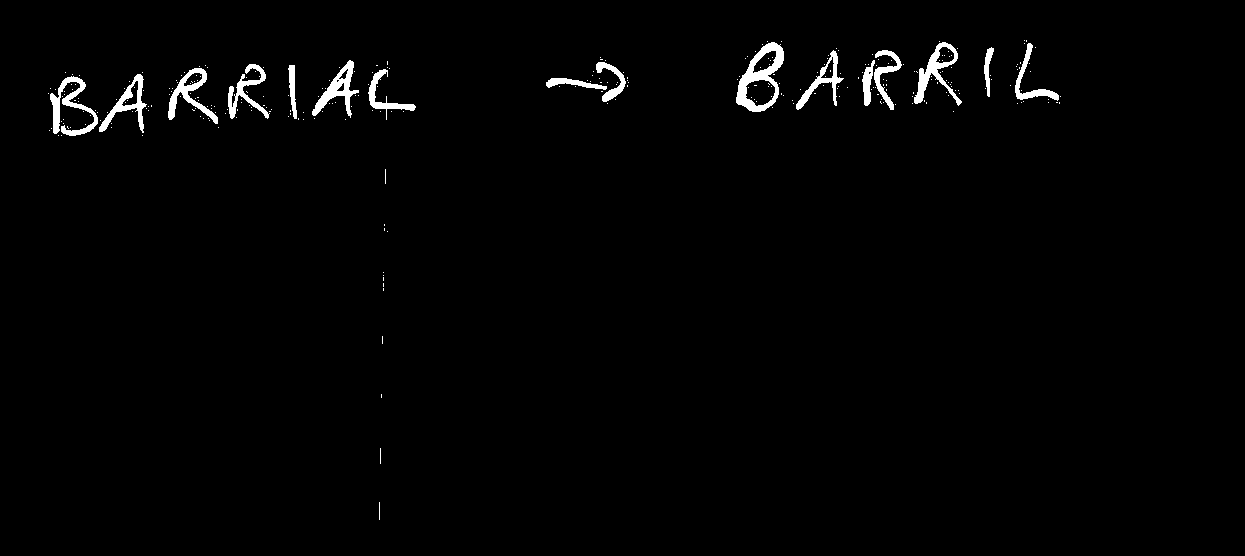 BARRIAL → BARRIL